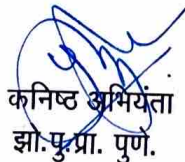 कनिष्ठ अभियंता
झो.पु.प्रा. पुणे.